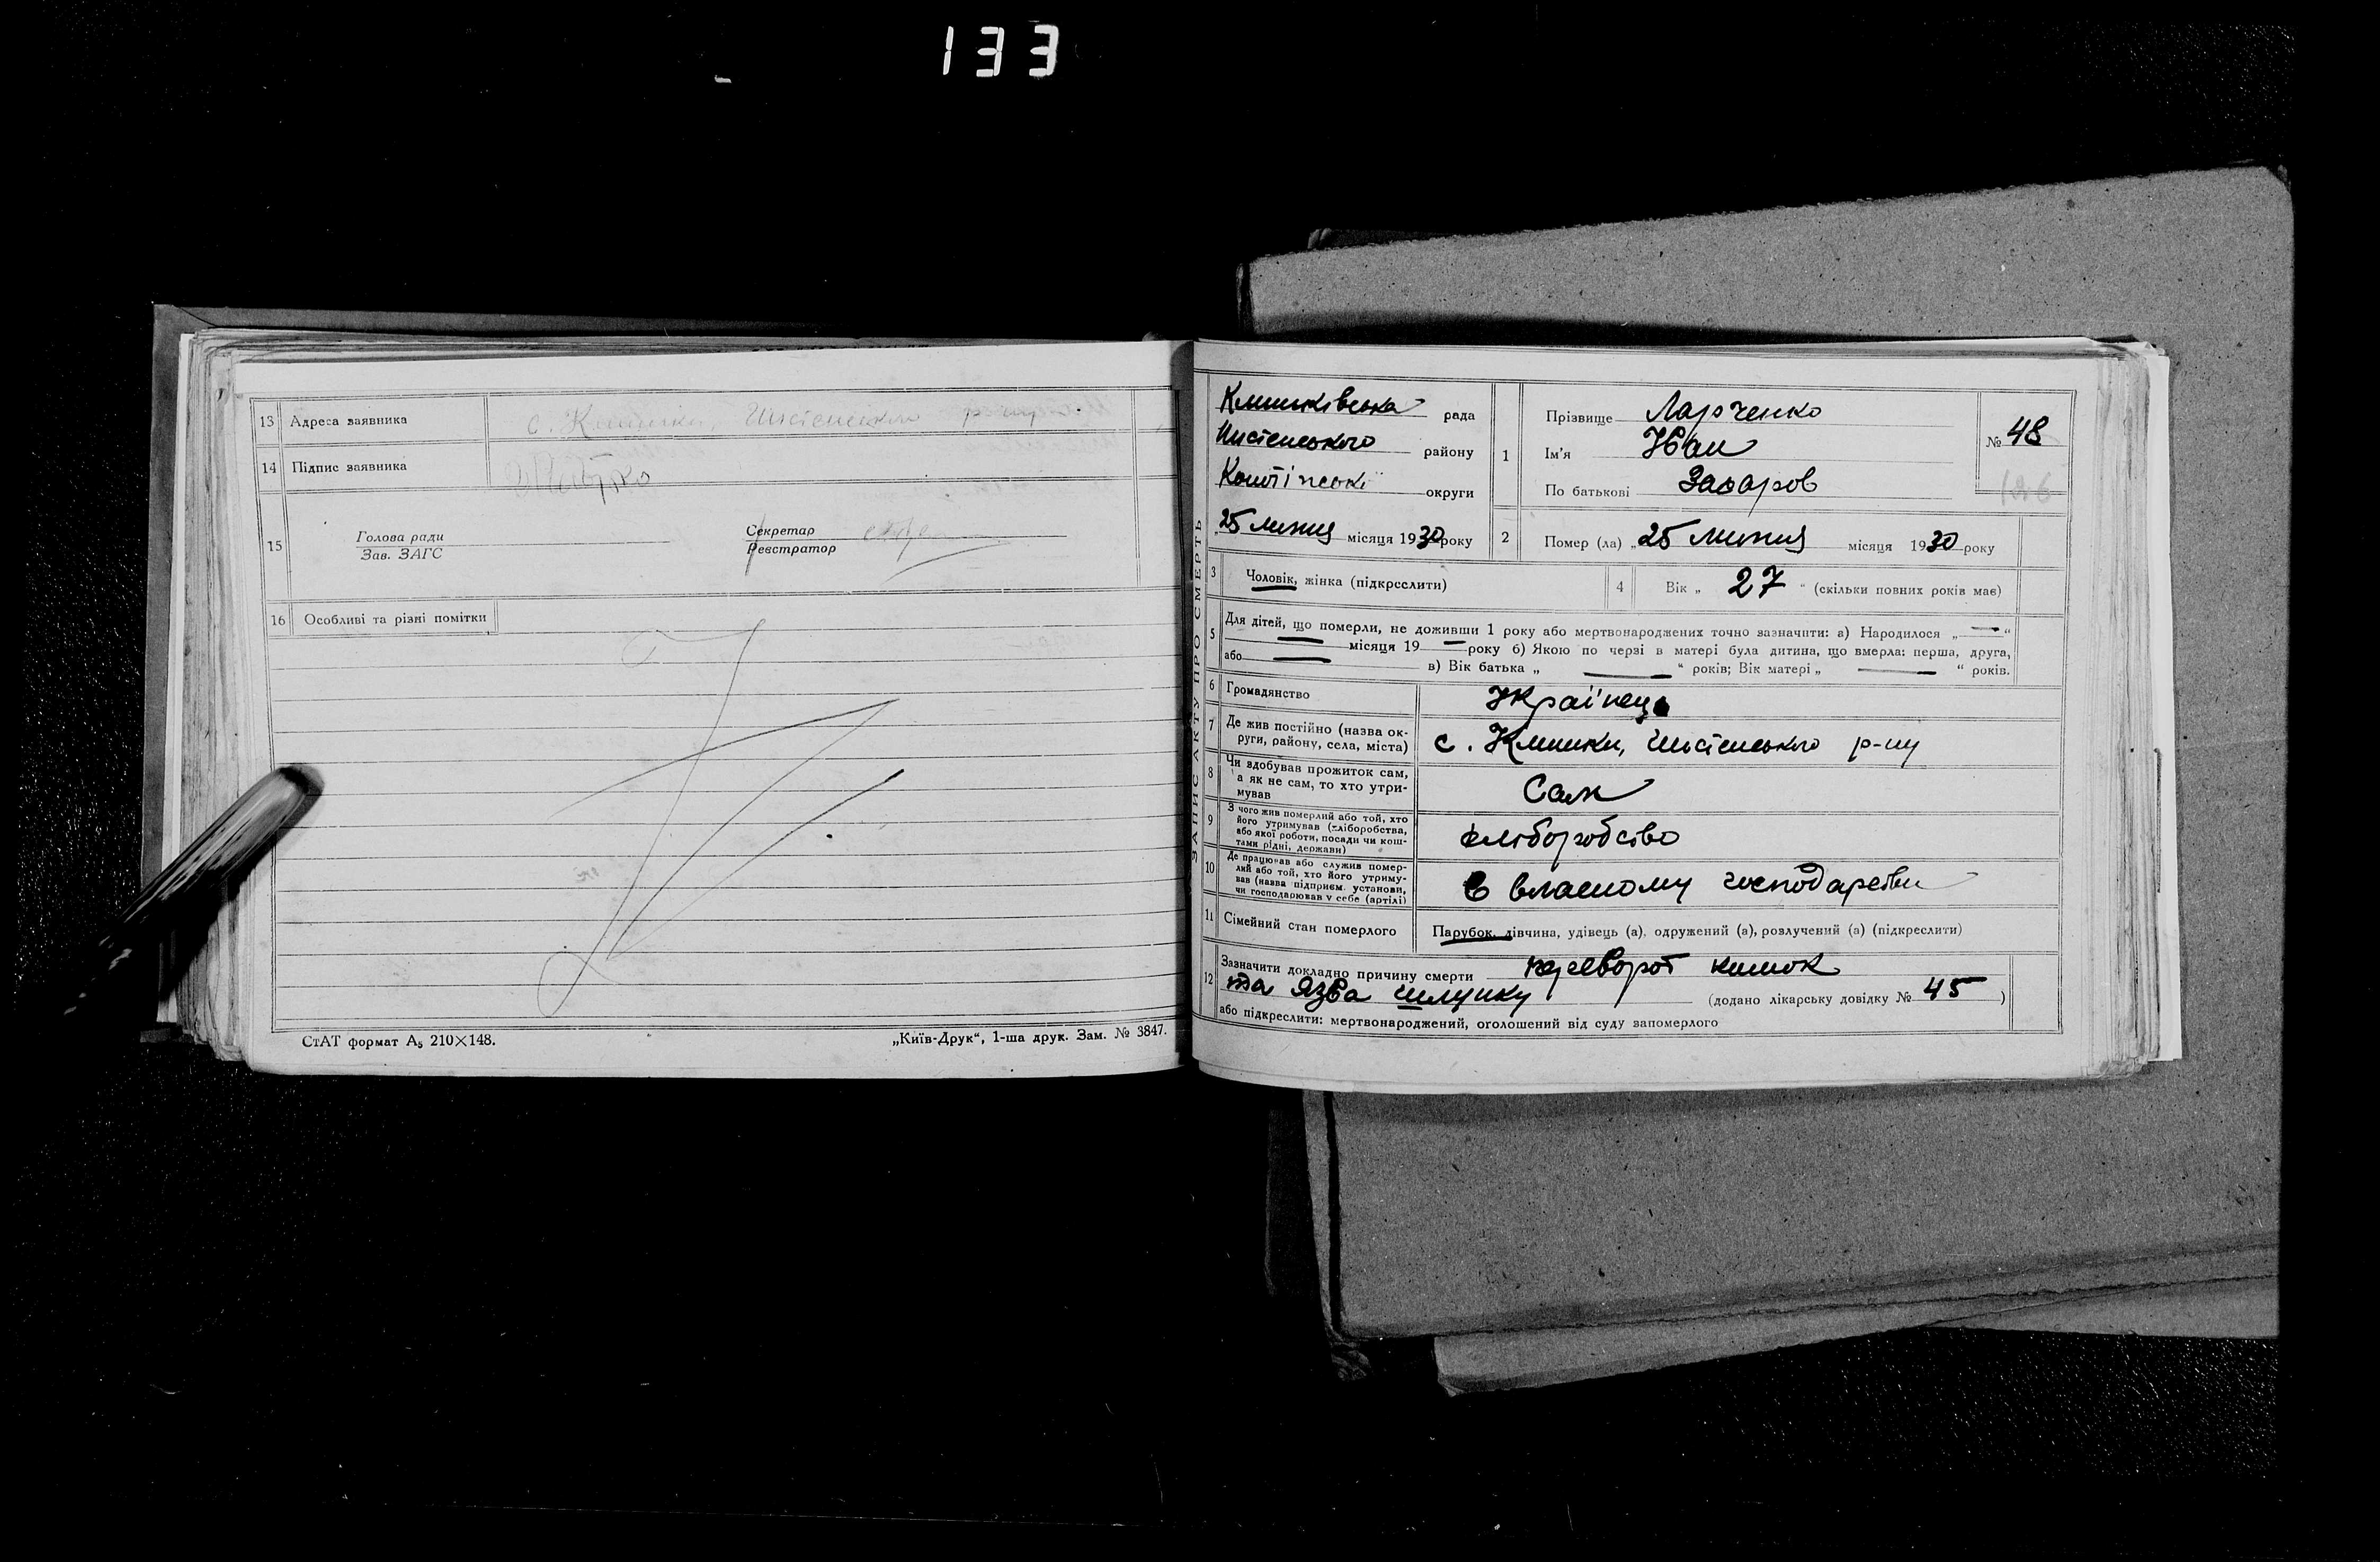 133
13 Адреса заявника с. Клишки, Шостенського р-ну
14 Підпис заявника
15 Голова ради
Зав. ЗАГС
Секретар
Реєстратор
16 Особливі та різні помітки
СтАТ формат А₅ 210×148.
„Київ-Друк“, 1-ша друк. Зам. № 3847.
ЗАПИС АКТУ ПРО СМЕРТЬ
Клишківська рада
району
округи
„25 Липня місяця 1930 року
1 Прізвище Ларченко
Ім'я Іван
По батькові Захаров
№ 48
2 Помер (ла) „25 Липня місяця 1930 року
3 Чоловік, жінка (підкреслити)
4 Вік „ 27 “ (скільки повних років має)
5 Для дітей, що померли, не доживши 1 року або мертвонароджених точно зазначити: а) Народилося „ — “
— місяця 19 — року б) Якою по черзі в матері була дитина, що вмерла: перша, друга,
або — в) Вік батька „ — “ років; Вік матері „ — “ років.
6 Громадянство Українець
7 Де жив постійно (назва ок-
руги, району, села, міста) с. Клишки, р-ну
8 Чи здобував прожиток сам,
а як не сам, то хто утри-
мував Сам
9 З чого жив померлий або той, хто
його утримував (хліборобства,
або якої роботи, посади чи кош-
тами рідні, держави) хліборобство
10 Де працював або служив помер-
лий або той, хто його утриму-
вав (назва підприєм. установи,
чи господарював у себе (артілі) в власному господарстві
11 Сімейний стан померлого Парубок, дівчина, удівець (а), одружений (а), розлучений (а) (підкреслити)
12 Зазначити докладно причину смерти переворот кишок
та язва шлунку (додано лікарську довідку № 45 )
або підкреслити: мертвонароджений, оголошений від суду запомерлого